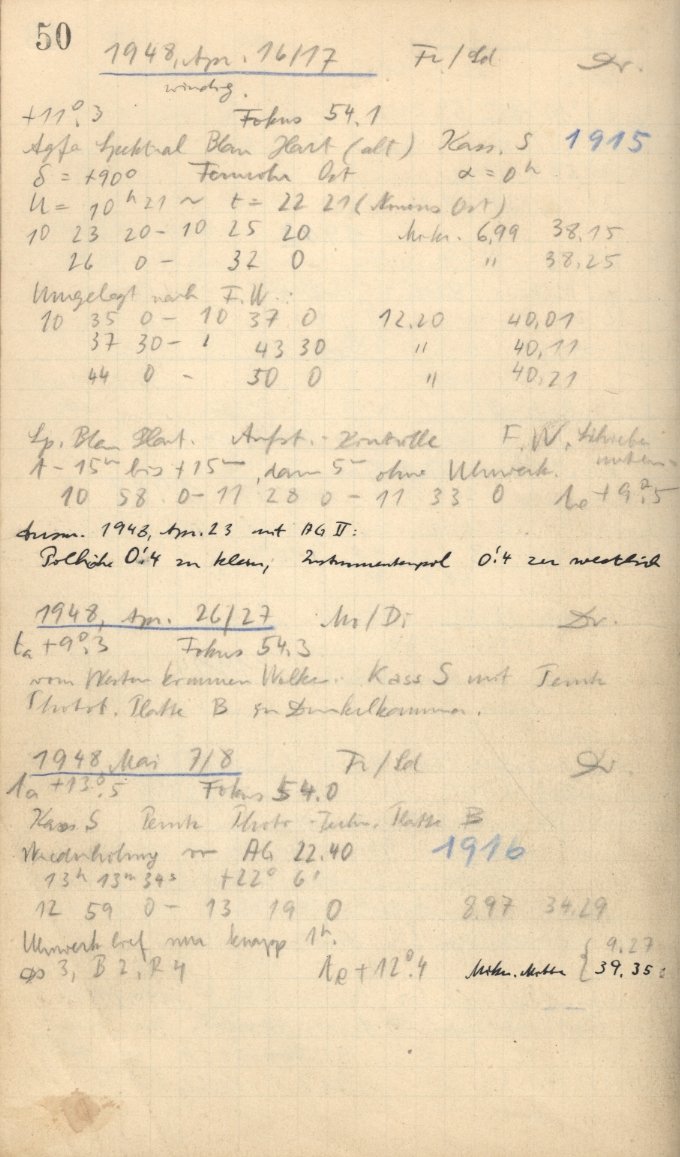 50
1948, Apr. 16/17 Fr/Sd Dr.
windig.
+11°.3 Fokus 54.1
Agfa Spektral Blau Hart (alt) Kass. S 1915
δ = +90° Fernrohr Ost α = 0h
U = 10h 21 ~ t = 22 21 (Ost)
10 23 20 - 10 25 20 Mikr. 6,99 38,15
26 0 - 32 0 " 38,25
Umgelegt nach F.W.:
10 35 0 - 10 37 0 12.20 40,01
37 30 - 43 30 " 40,11
44 0 - 50 0 " 40,21
Sp. Blau Hart. Aufst.-Kontrolle F.W.
t - 15m bis +15m, dann 5m ohne Uhrwerk.
10 58 0 - 11 28 0 - 11 33 0 te +9°.5
Ausm. 1948, Apr. 23 mit AG II:
Polhöhe 0'.4 zu klein, Instrumentenpol 0'.4 zu westlich
1948, Apr. 26/27 Mo/Di Dr.
ta +9°.3 Fokus 54.3
vom Westen kommen Wolken. Kass S mit
Platte B in Dunkelkammer.
1948 Mai 7/8 Fr/Sd Dr.
ta +13°.5 Fokus 54.0
Kass. S Photo-Techn. Platte B
Wiederholung von AG 22.40 1916
13h 13m 34s +22° 6'
12 59 0 - 13 19 0 8.97 34.29
Uhrwerk lief nur knapp 1h.
3, B 2, R 4 te +12°.4 Mikr. Mitte { 9.27
39.35